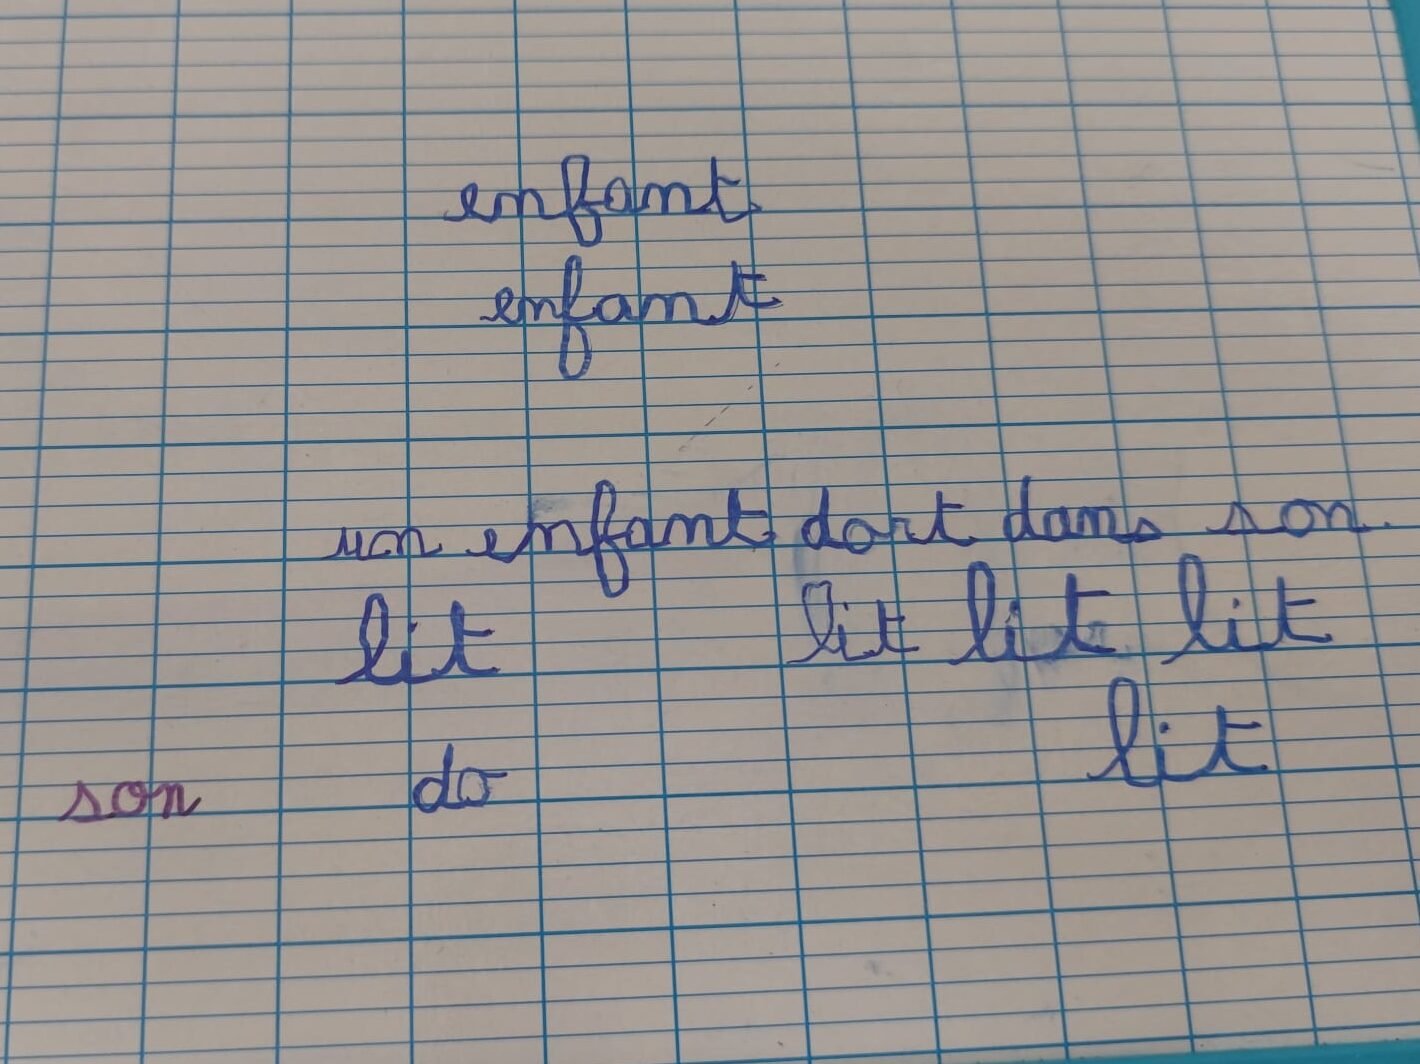 enfant
enfant
un enfant dort dans son
lit lit lit lit
lit
son do